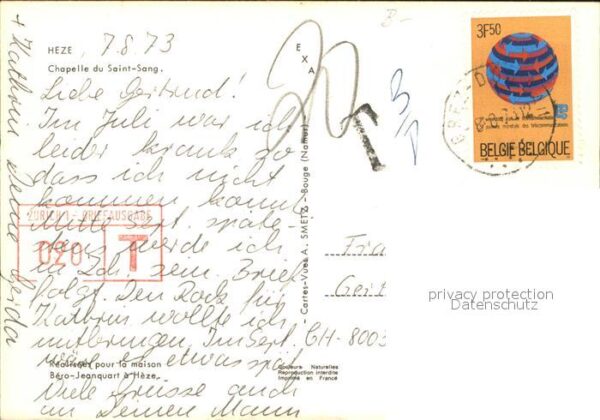 HEZE, 7.8.73
Chapelle du Saint-Sang.
Liebe Gertrud!
Im Juli war ich
leider krank so
dass ich nicht
kommen konnte
Mitte Sept. späte-
stens werde ich
in Zch. sein. Brief
folgt. Den Rock für
Kathrin wollte ich
mitbringen. Im Sept.
wäre es etwas spät
Viele Grüsse auch
an Deinen Mann
+ Kathrin Deine Gerda
ZÜRICH 1 - BRIEFAUSGABE
020 T
Réalisées pour la maison
Béro-Jeanquart à Hèze.
EXA
Cartes-Vues A. SMETZ - Bouge (Namur)
Couleurs Naturelles
Reproduction interdite
Imprimé en France
T
3F50
BELGIE BELGIQUE
Fra
Gert
CH-8003
privacy protection
Datenschutz